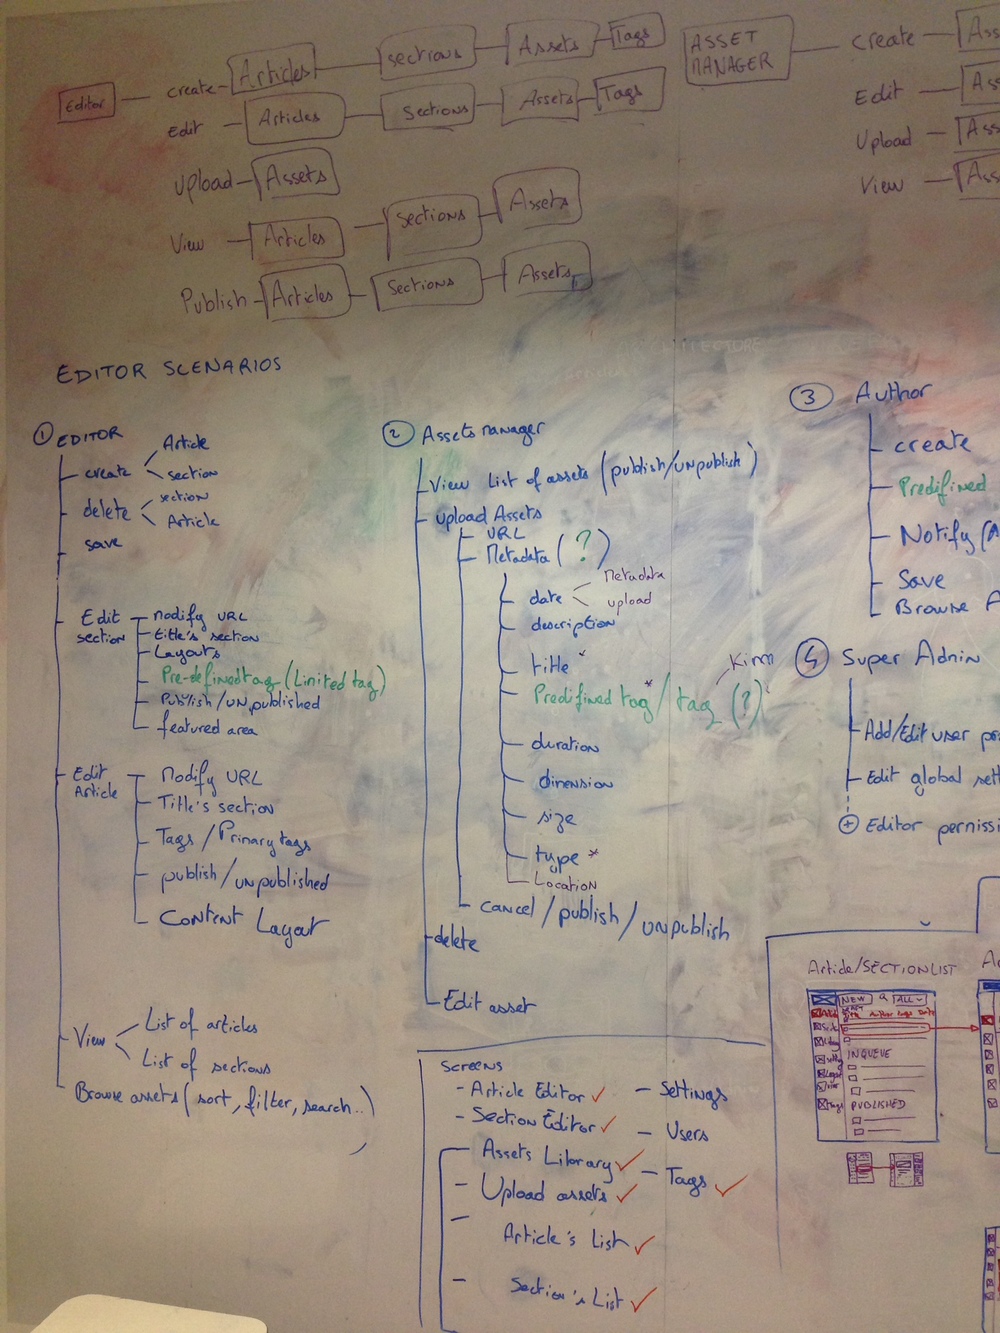 Editor
create Articles sections Assets Tags
Edit Articles Sections Assets Tags
Upload Assets
View Articles Sections Assets
Publish Articles Sections Assets
ASSET MANAGER
create Ass
Edit As
Upload Ass
View Ass
EDITOR SCENARIOS
① EDITOR
create Article
section
delete section
Article
save
Edit section
modify URL
title's section
Layouts
Pre-defined tag (Limited tag)
Publish/un published
featured area
Edit Article
Modify URL
Title's section
Tags / Primary tags
publish / unpublished
Content Layout
View List of articles
List of sections
Browse assets (sort, filter, search..)
② Assets manager
View List of assets (publish/unpublish)
upload Assets
URL
Metadata (?)
date Metadata
upload
description
title *
Predifined tag* / tag (?) Kim
duration
dimension
size
type *
Location
cancel / publish / unpublish
delete
Edit asset
③ Author
create
Predifined
Notify (A
Save
Browse A
④ Super Admin
Add/Edit user
Edit global sett
+ Editor permissi
SCREENS
- Article Editor ✓
- Section Editor ✓
Assets Library ✓
- Upload assets ✓
- Article's List ✓
- Section's List ✓
- Settings
- Users
- Tags ✓
Article/SECTION LIST
NEW ALL
IN QUEUE
PUBLISHED